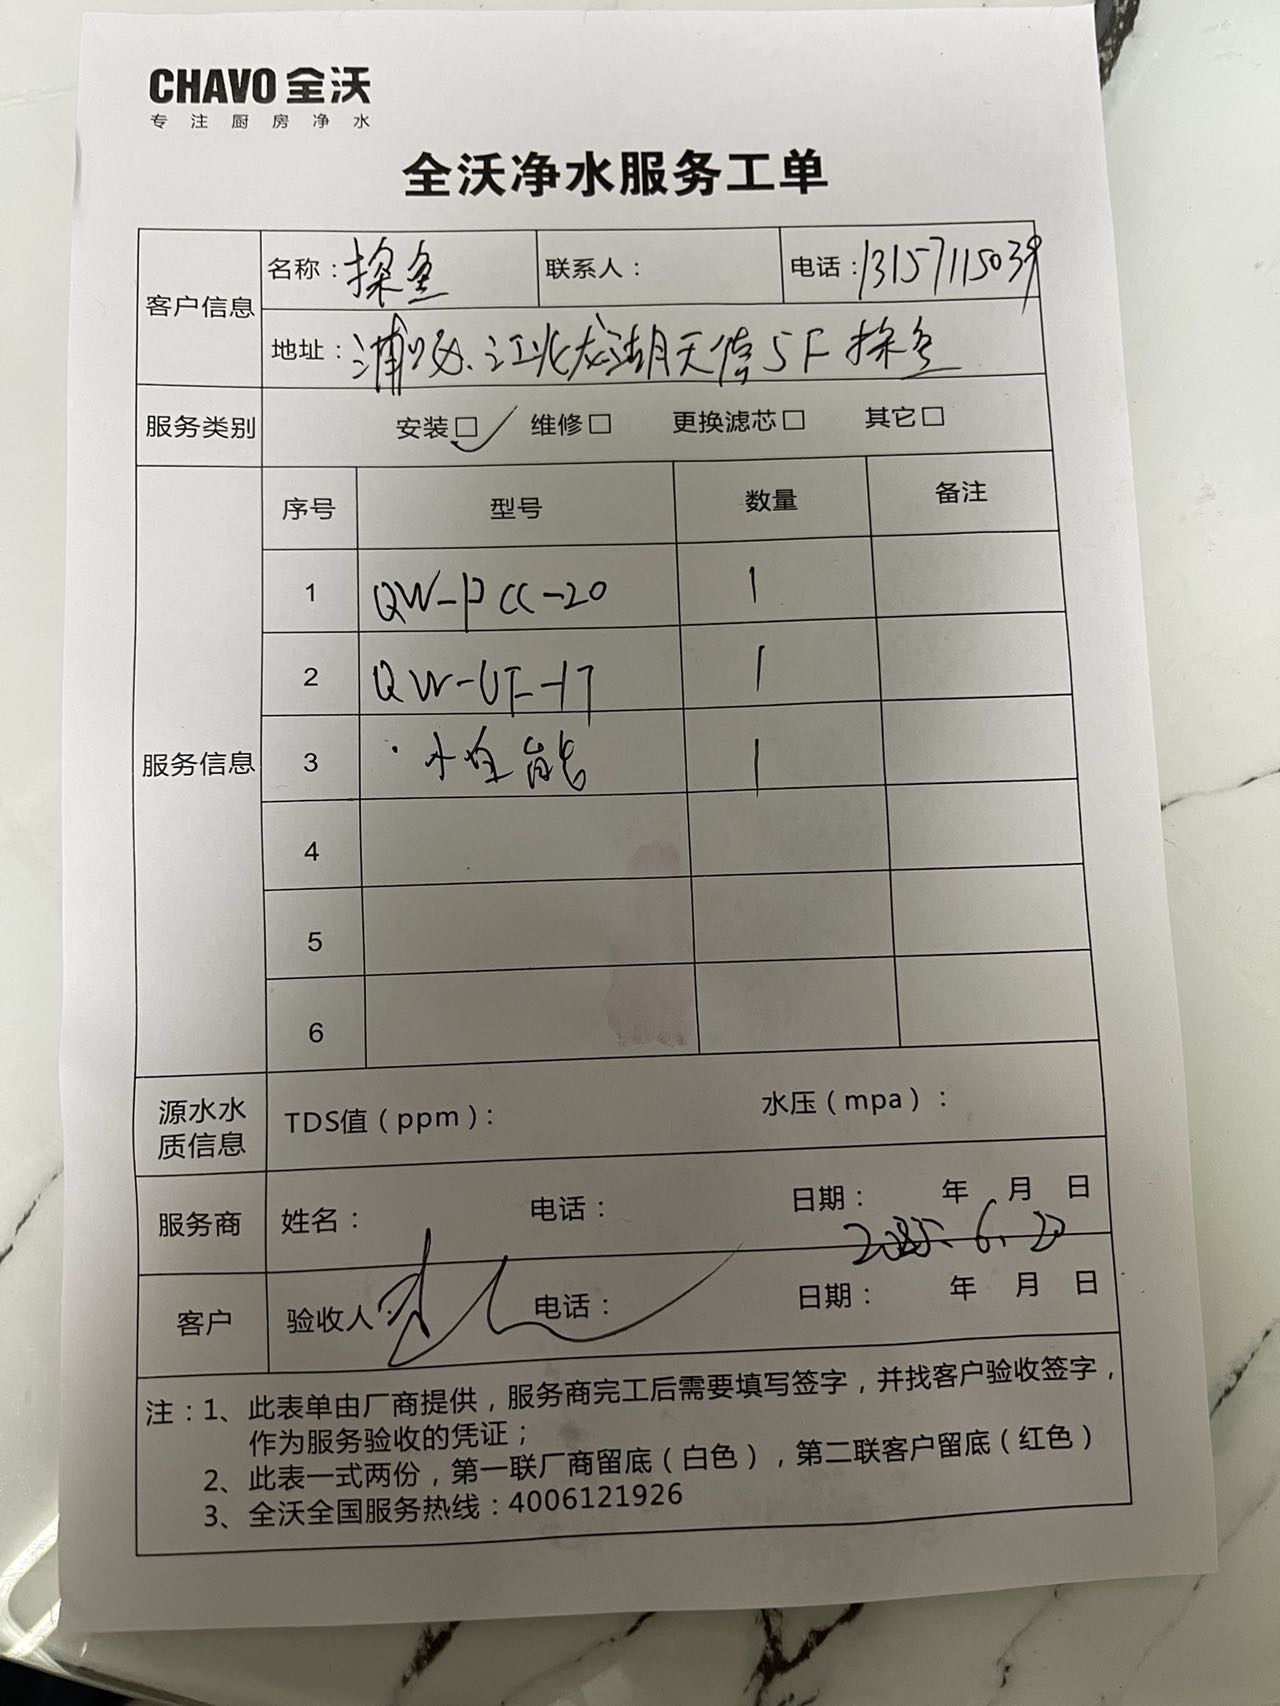 CHAVO 全沃
专注厨房净水
全沃净水服务工单
客户信息
名称：探鱼 联系人： 电话：13157115039
地址： 江北龙湖天街5F 探鱼
服务类别 安装□✓ 维修□ 更换滤芯□ 其它□
服务信息
序号 型号 数量 备注
1 QW-PCC-20 1
2 QW-UF-17 1
3 水 能 1
4
5
6
源水水质信息 TDS值（ppm）： 水压（mpa）：
服务商 姓名： 电话： 日期： 年 月 日
2025.6.20
客户 验收人： 电话： 日期： 年 月 日
注：1、此表单由厂商提供，服务商完工后需要填写签字，并找客户验收签字，
作为服务验收的凭证；
2、此表一式两份，第一联厂商留底（白色），第二联客户留底（红色）
3、全沃全国服务热线：4006121926